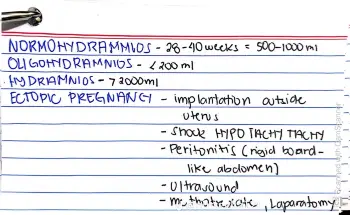 NORMOHYDRAMNIOS - 28-40 weeks = 500-1000 ml
OLIGOHYDRAMNIOS - < 200 ml
HYDRAMNIOS - > 2000 ml
ECTOPIC PREGNANCY - implantation outside
uterus
- Shock HYPO TACHY TACHY
- Peritonitis (rigid board-
like abdomen)
- Ultrasound
- methotrexate, Laparatomy